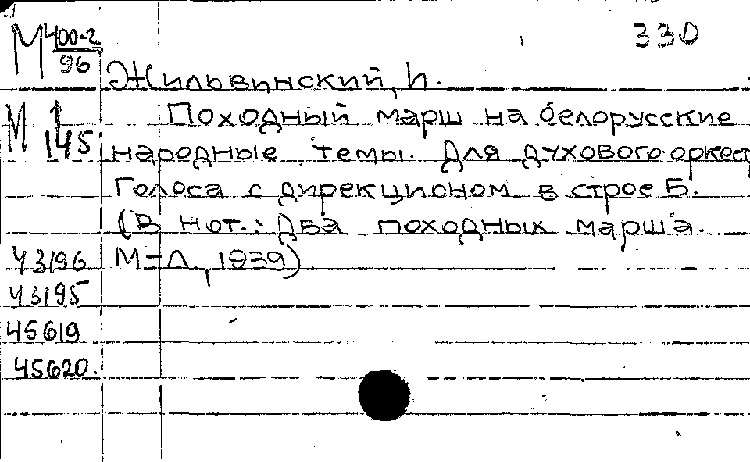 М 400-2 330
96
Жильвинский, И.
М 1 Походный марш на белорусские
145 народные темы. Для духового оркест
Голоса с дирекционом в строе Б.
(В нот.: Два походных марша.
43196 М-Л, 1939)
43195
45619
45620.